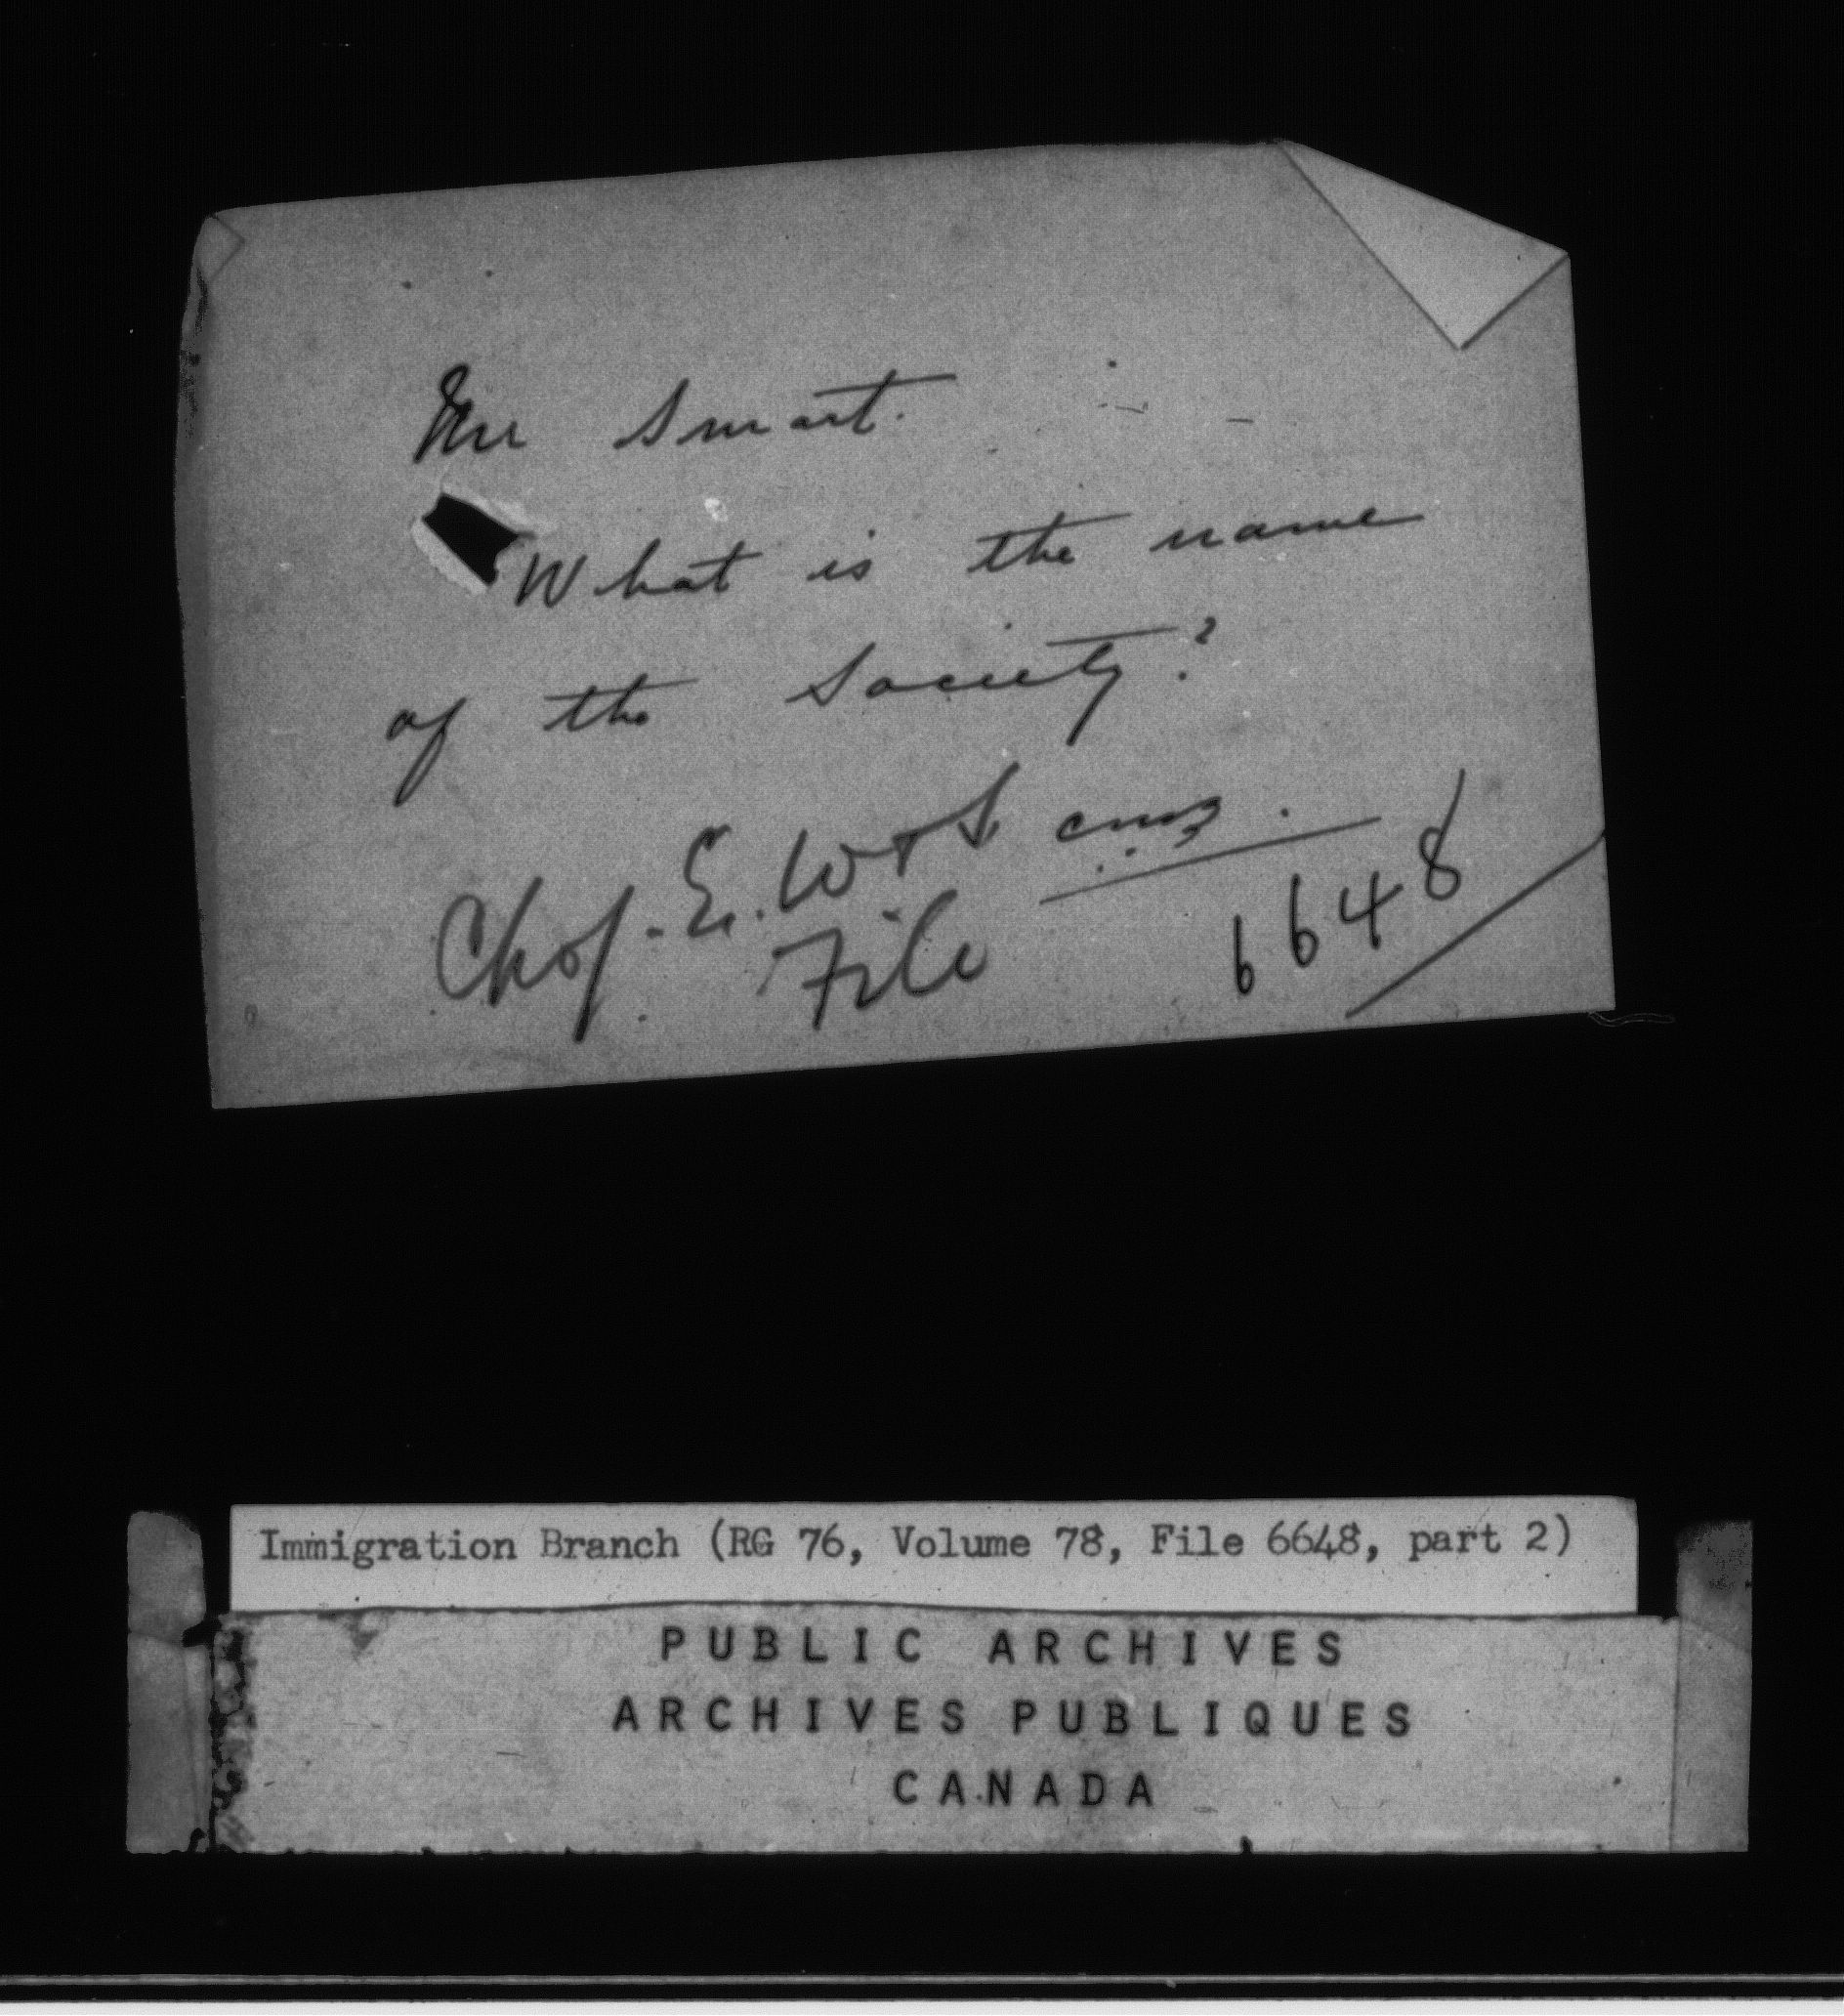 Mr Smart.
What is the name
of the Society?
6648
File
Immigration Branch (RG 76, Volume 78, File 6648, part 2)
PUBLIC ARCHIVES
ARCHIVES PUBLIQUES
CANADA